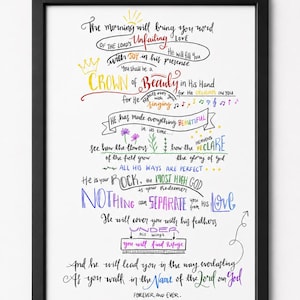 The morning will bring you word
OF THE LORD'S Unfailing LOVE
He will fill you
with JOY in his presence
You shall be a
CROWN of Beauty in His Hand
for He
with
singing
HE has made everything BEAUTIFUL
in its time
see how the flowers
of the field grow
how the heavens DECLARE
the glory of God
ALL HIS WAYS ARE PERFECT
He is your ROCK, the MOST HIGH GOD
is your Redeemer
NOTHING can SEPARATE you from His Love
He will cover you with his feathers
UNDER
his wings
you will find Refuge
And he will lead you in the way everlasting
As you walk in the Name of the Lord our God
FOREVER AND EVER